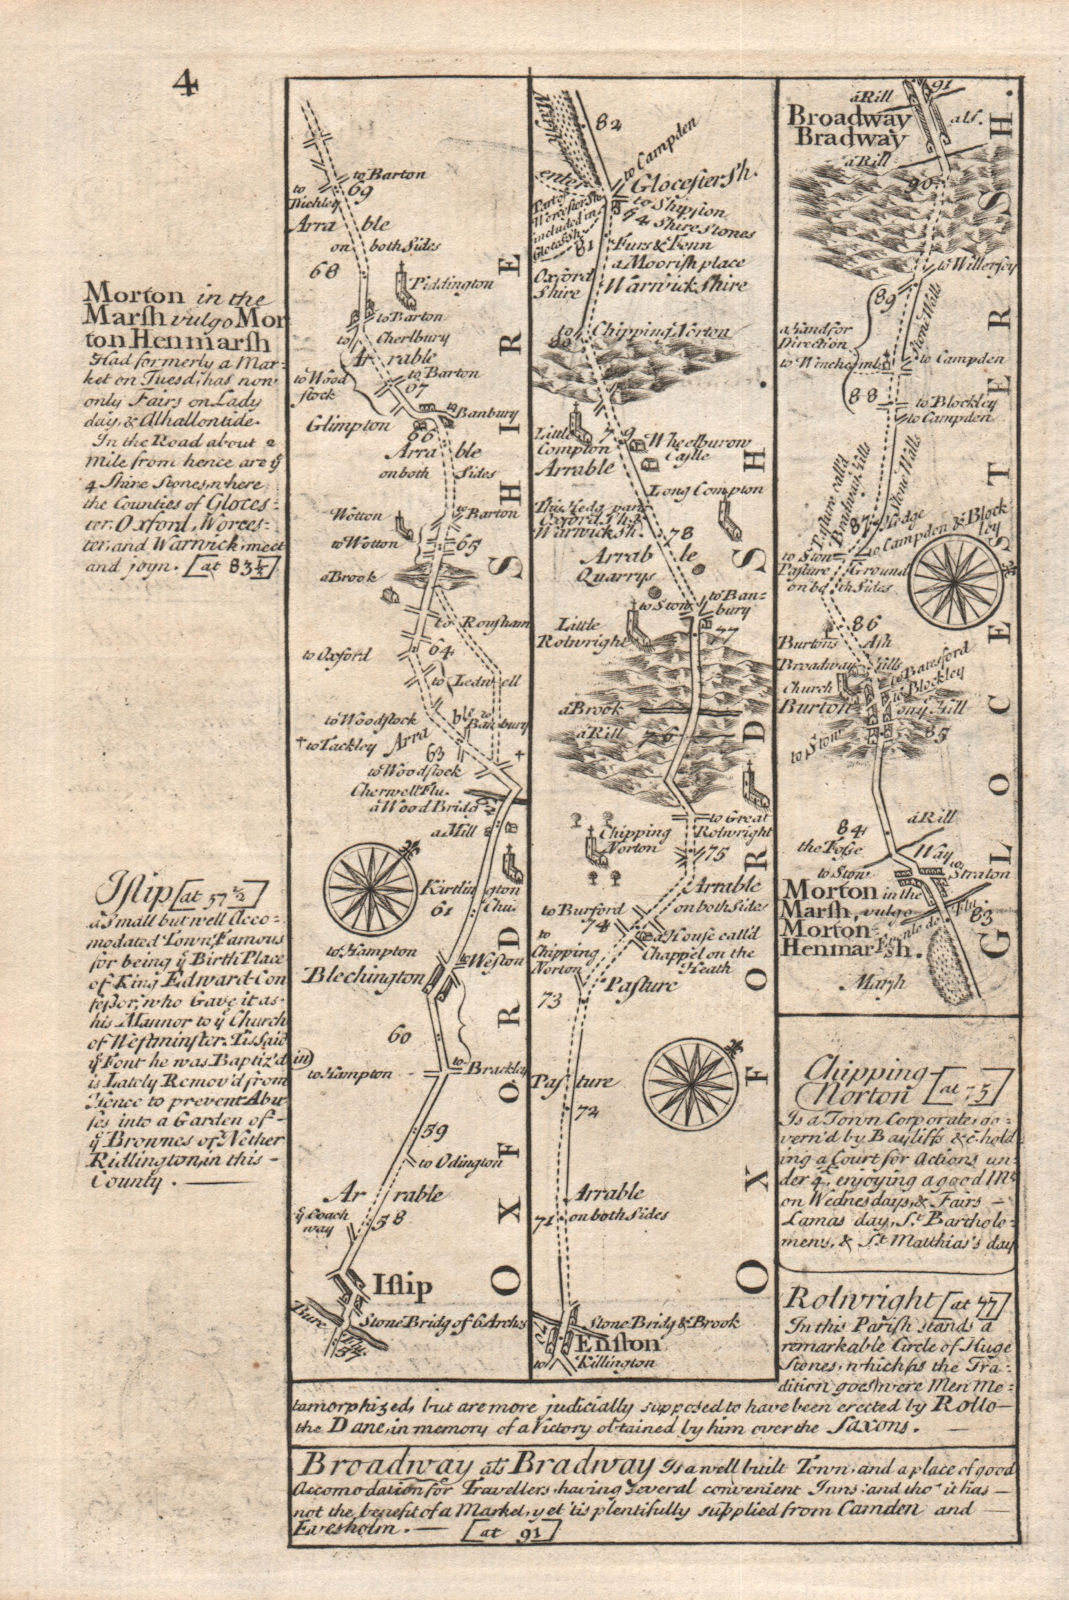 4
Morton in the
Marsh vulgo Mor
ton Henmarsh
Had formerly a Mar-
ket on Tuesd; has now
only Fairs on Lady
day, & Alhallontide.
In the Road about 2
Mile from hence are ÿ
4 Shire Stones, where
the Counties of Gloces-
ter, Oxford, Worces-
ter, and Warwick, meet
and joyn. [at 83½]
Islip [at 57½]
a Small but well Acco-
modated Town, Famous
for being ÿ Birth Place
of King Edward Con
fessor, who Gave it as
his Mannor to ÿ Church
of Westminster. Tis Said
ÿ Font he was Baptiz'd in
is Lately Remov'd from
Hence to prevent Abu
ses into a Garden of
ÿ Brownes of Nether
Ridlington, in this
County.
OXFORDSHIRE
to Barton
69
Arrable
on both Sides
68
Piddington
to Barton
to Cherlbury
Arrable
to Wood
stock
to Barton
67
to Banbury
Glimpton
66
Arrable
on both Sides
Wotton
to Barton
to Wotton
65
a Brook
to Rousham
to Oxford
64
to Ledwell
to Woodstock
to Banbury
Arrable
to Tackley
63
to Woodstock
Cherwell Flu.
a Wood Bridg
a Mill
Kirtlington
Chu.
61
to Hampton
to Weston
Blechington
60
to Hampton
to Brackley
59
to Odington
Arrable
ÿ Coach
way
58
Islip
Stone Bridg of 6 Arches
57
OXFORDSH.
Marsh
82
to Campden
enter
Glocestersh.
Part of
Worcestersh
included in
Glocessh
to Shipston
4 Shire Stones
81
Furs & Fenn
a Moorish place
Oxford
Shire
Warwickshire
to Chipping Norton
80
Little
Compton
79
Wheelburow
Castle
Arrable
Long Compton
This Ledg parts
Oxfordsh &
Warwicksh.
78
Arrable
Quarrys
to Stow
to Ban-
bury
77
Little
Rolwright
a Brook
a Rill
76
to Great
Rolwright
Chipping
Norton
75
Arrable
on both Sides
to Burford
74
a House call'd
Chappel on the
Heath
to
Chipping
Norton
73
Pasture
Pasture
72
Arrable
71
on both Sides
Stone Bridg & Brook
70
Enston
to Killington
GLOCESTERSH.
91
a Rill
Broadway
als.
Bradway
a Rill
90
to Willersey
89
Stone Walls
a Hand for
Direction
to Winchcomb
to Campden
88
to Blockley
to Campden
Stone Walls
Pasture call'd
87
Hedge
to Campden & Block
ley
to Stow
Pasture Ground
on both Sides
86
Burtons Ash
Broadway Hills
to Batesford
Church
to Blockley
Burton on ÿ Hill
to Stow
85
a Rill
84
the Fosse
Way
to Stow
to Straton
Morton in the
Marsh, vulgo
Morton
Henmarsh.
Flu.
83
Marsh
Chipping
Norton [at 75]
Is a Town Corporate, go-
vern'd by Bayliffs &c hold-
ing a Court for Actions un-
der 4£, enjoying a good Mt.
on Wednesdays, & Fairs
Lamas day, St. Bartholo-
mews, & St Matthias's day
Rolwright [at 77]
In this Parish stands a
remarkable Circle of Huge
Stones, which (as the Tra-
dition goes) were Men Me-
tamorphized, but are more judicially supposed to have been erected by Rollo
the Dane, in memory of a Victory obtained by him over the Saxons.
Broadway als Bradway Is a well built Town, and a place of good
Accomodation for Travellers, having several convenient Inns: and tho' it has
not the benefit of a Market, yet 'tis plentifully supplied from Camden and
Evesholm. [at 91]